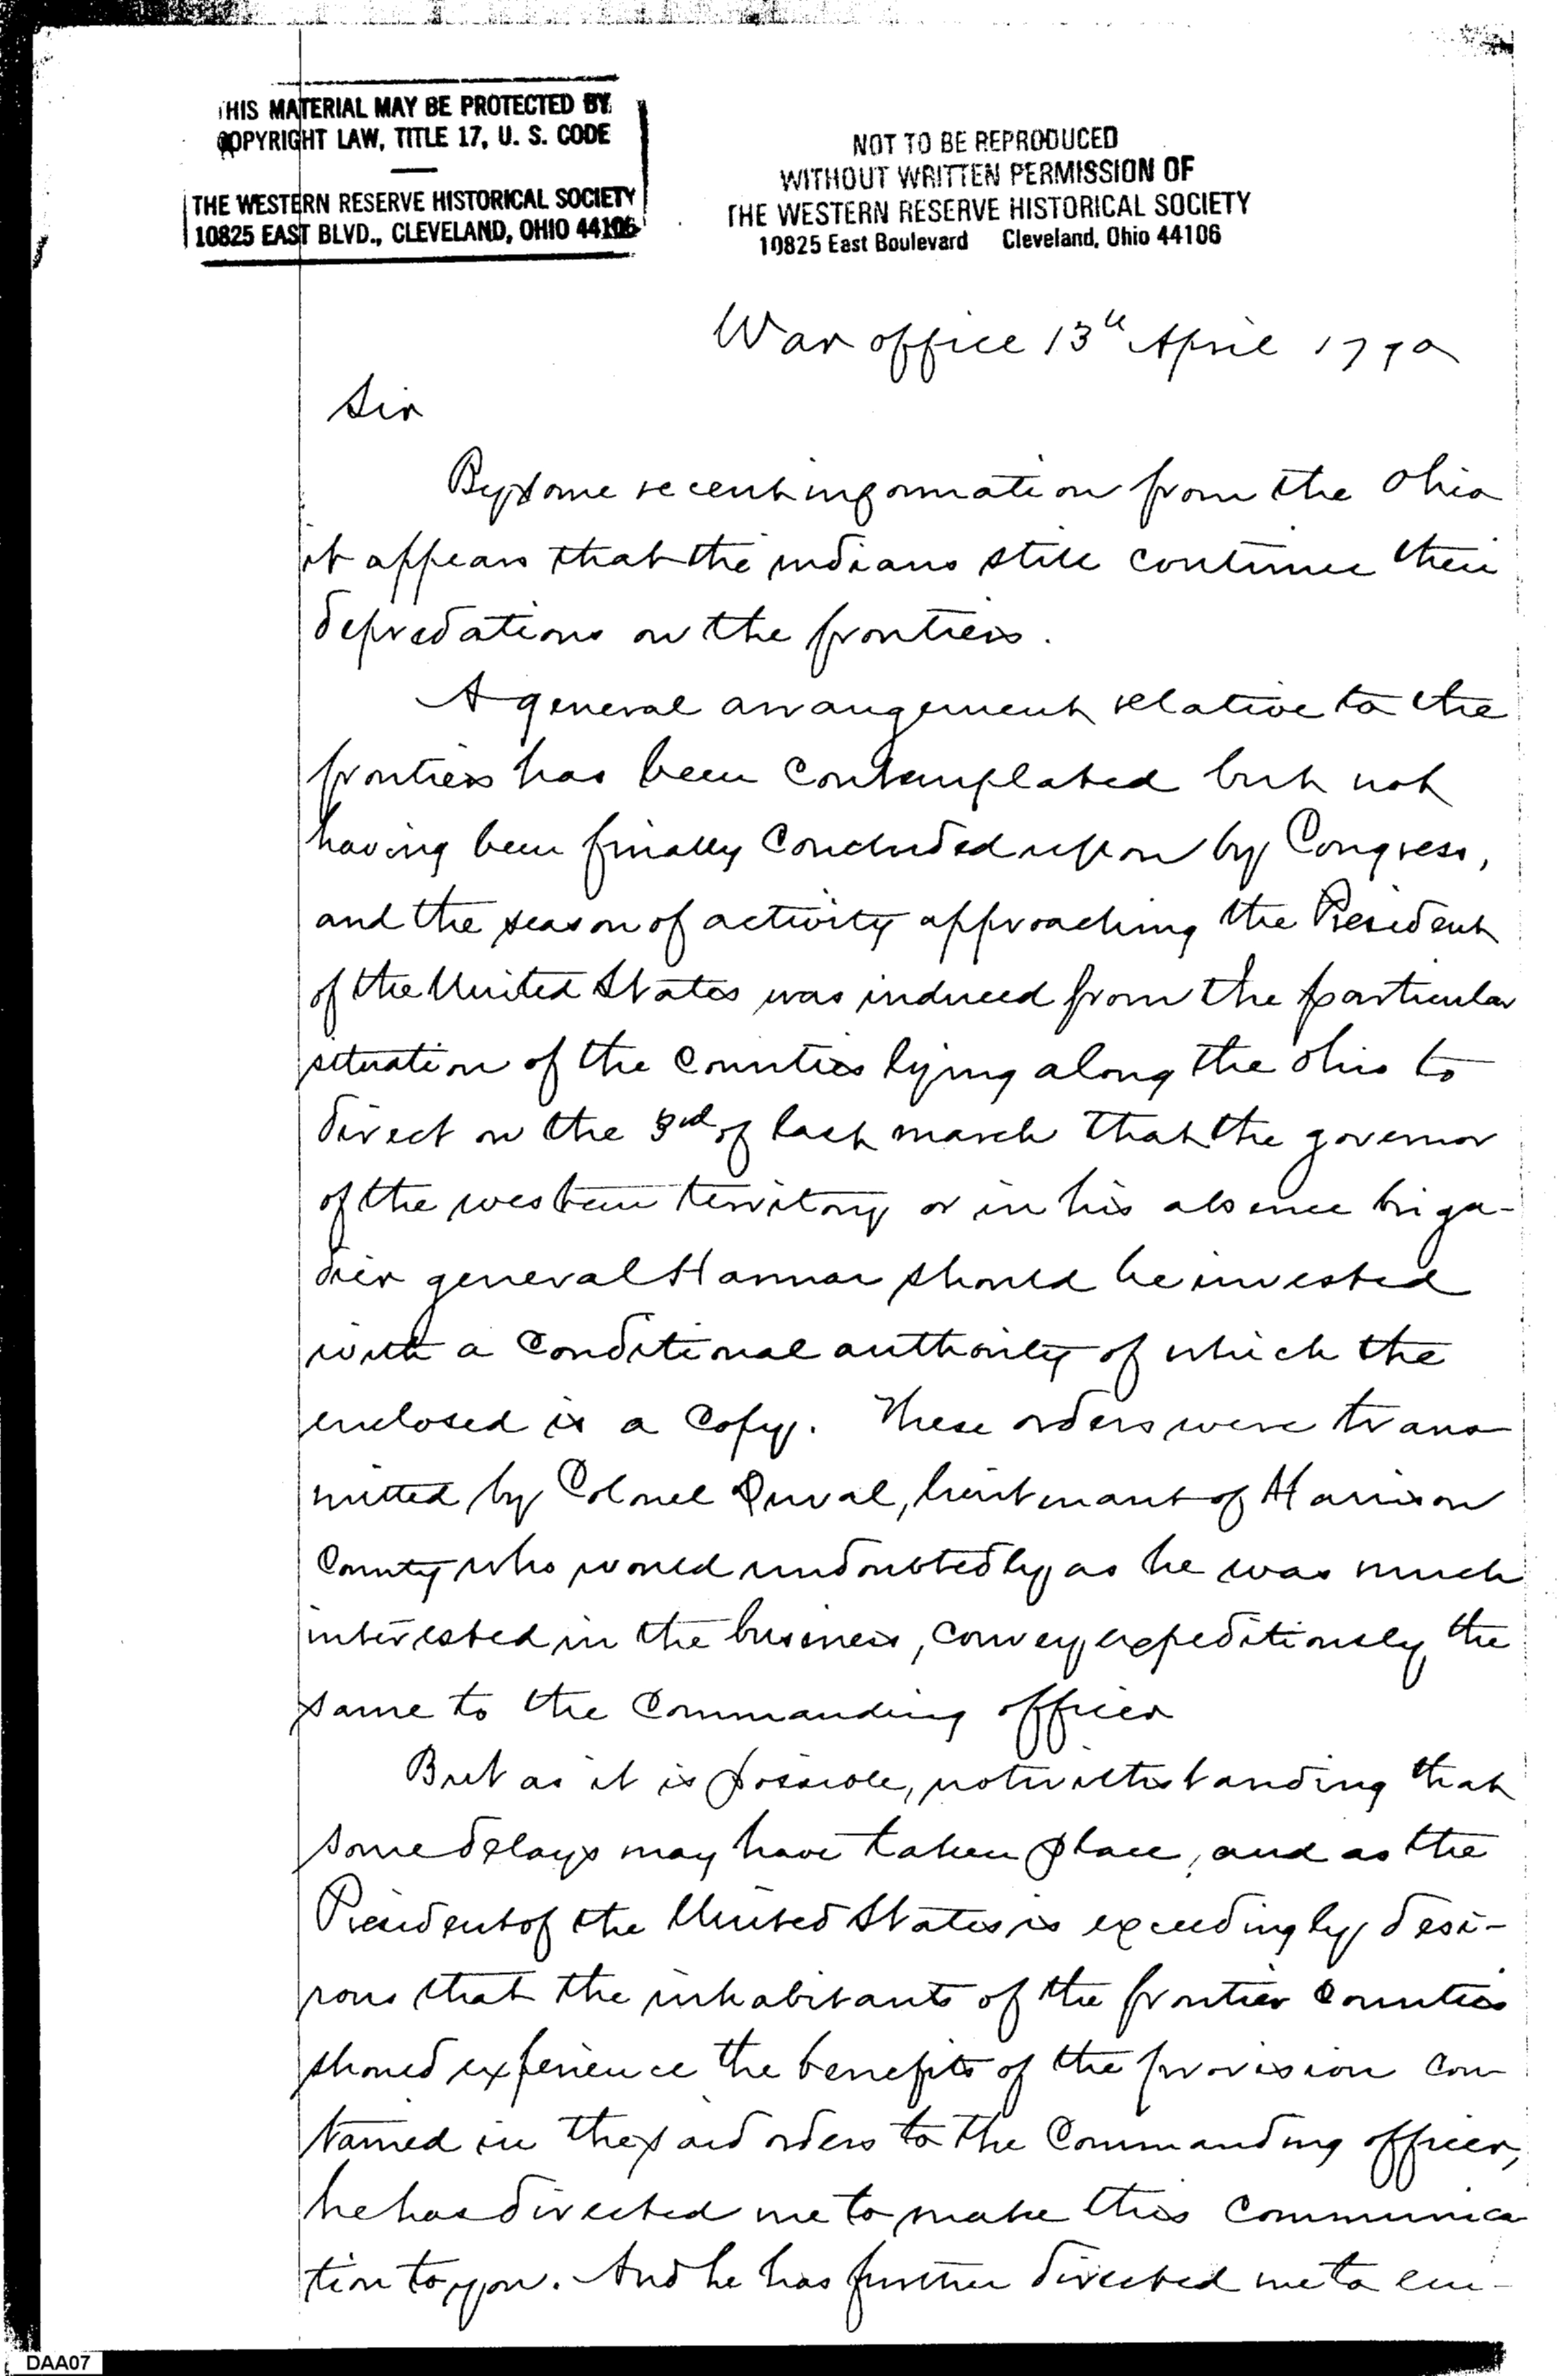 THIS MATERIAL MAY BE PROTECTED BY
COPYRIGHT LAW, TITLE 17, U. S. CODE
THE WESTERN RESERVE HISTORICAL SOCIETY
10825 EAST BLVD., CLEVELAND, OHIO 44106
NOT TO BE REPRODUCED
WITHOUT WRITTEN PERMISSION OF
THE WESTERN RESERVE HISTORICAL SOCIETY
10825 East Boulevard Cleveland, Ohio 44106
War office 13th April 1790
Sir
By some recent information from the Ohio
it appears that the indians still continue their
depredations on the frontiers.
A general arrangement relative to the
frontiers has been contemplated but not
having been finally concluded upon by Congress,
and the season of activity approaching the President
of the United States was induced from the particular
situation of the counties lying along the Ohio to
direct on the 3rd of last march that the governor
of the western territory or in his absence briga-
dier general Harmar should be invested
with a conditional authority of which the
enclosed is a copy. These orders were trans
mitted by Colonel Duval, lieutenant of Harrison
County who would undoubtedly as he was much
interested in the business, convey expeditiously the
same to the commanding officer
But as it is possible, notwithstanding that
some delays may have taken place, and as the
President of the United States is exceedingly desi-
rous that the inhabitants of the frontier counties
should experience the benefits of the provision con
tained in the said orders to the Commanding officer,
he has directed me to make this communica
tion to you. And he has further directed me to em-
DAA07